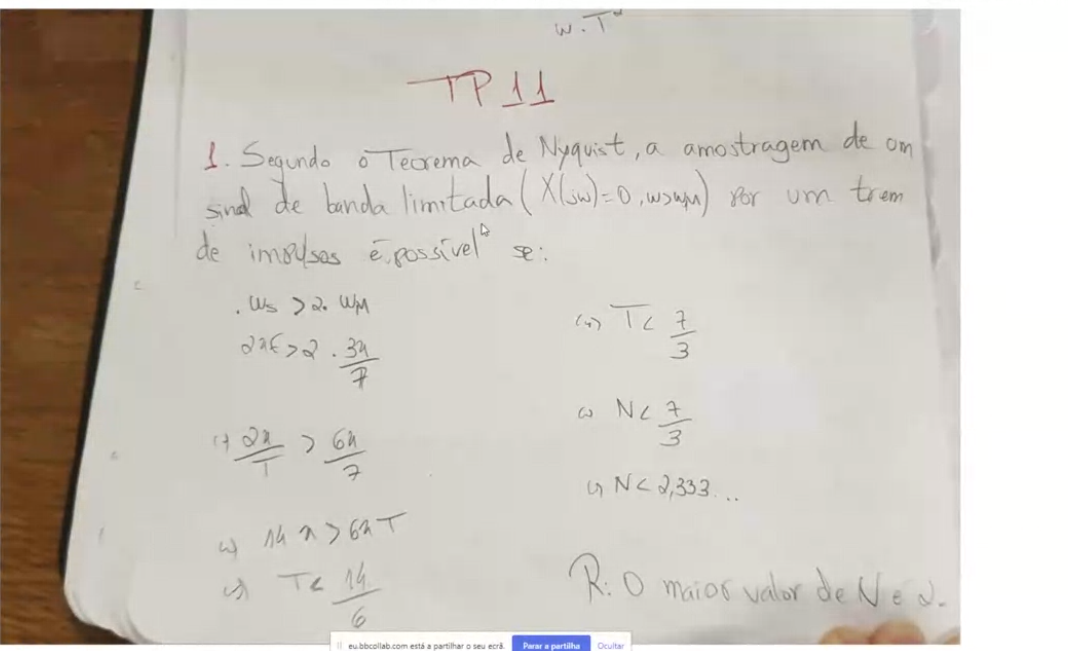 w.T
TP 11
1. Segundo o Teorema de Nyquist, a amostragem de um
sinal de banda limitada (X(jw)=0, w>wM) por um trem
de impulsos é possível se:
. ws > 2. wM
2πf > 2 . 3π/7
(=) 2π/T > 6π/7
(=) 14 π > 6π T
(=) T < 14/6
(=) T < 7/3
(=) N < 7/3
(=) N < 2,333...
R: O maior valor de N e 2.
eu.bbcollab.com está a partilhar o seu ecrã. Parar a partilha Ocultar